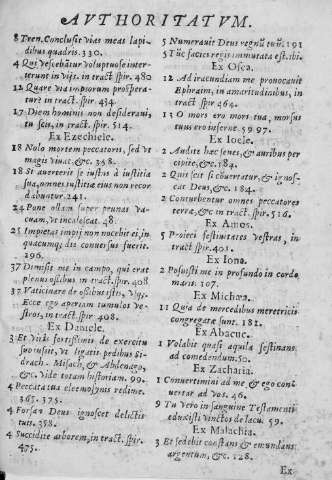 AVTHORITATVM.
8 Tren. Conclusit vias meas lapi-
dibus quadris. 330.
4 Qui vescebãtur voluptuose inter-
ierunt in vijs. in tract. spir. 480
12 Quare via impiorum prospera-
ture in tract. spir. 434.
17 Diem hominis non desideraui,
tu scis, in tract. spir. 514.
Ex Ezechiele.
18 Nolo mortem peccatoris, sed vt
magis viuat &c. 358.
18 Si auerterit se iustus à iustitia
sua, omnes iustitiæ eius non recor
dabuntur. 241.
24 Pone ollam super prunas va-
cuam, vt incalescat. 48.
25 Impietas impij non nocebit ei, in
quacumq; die conuersus fuerit.
296.
37 Dimisit me in campo, qui erat
plenus ossibus in tract. spir. 408
37 Vaticinare de ossibus istis,
Ecce ego aperiam tumulos ve-
stros, in tract. spir. 408.
Ex Daniele.
3 Et Viris fortissimis de exercitu
suo iussit, vt ligatis pedibus Si-
drach. Misach, & Abdenago,
&c. Vide totam historiam. 99.
4 Peccata tua eleemosynis redime.
365. 375.
4 Forsan Deus ignoscet delictis
tuis. 358.
4 Succidite arborem, in tract. spir.
475.
5 Numerauit Deus regnũ tuũ. 191
5 Tũc facies regis immutata est. ibi.
Ex Osea.
12 Ad iracundiam me prouocauit
Ephraim, in amaritudinibus, in
tract spir 464.
13 O mors ero mors tua, morsus
tuus ero inferne. 59 97.
Ex Ioele.
2 Audite hæc senes, & auribus per
cipite, &c. 184.
2 Quis scit si cõuertatur, & ignos-
cat Deus, &c. 184.
2 Conturbentur omnes peccatores
terræ, &c in tract. spir. 516.
Ex Amos.
5 Proieci festiuitates vestras, in
tract spir. 401.
Ex Iona.
2 Posuisti me in profundo in corde
maris. 107.
Ex Michæa.
11 Quia de mercedibus meretricis
congregatæ sunt. 182.
Ex Abacuc.
1 Volabit quasi aquila festinans
ad comedendum 50.
Ex Zacharia.
1 Conuertimini ad me, & ego conu
uertar ad vos. 46.
9 Tu vero in sanguine Testamenti
eduxisti vinctos de lacu. 59.
Ex Malachia.
3 Et sedebit conflans & emundans
argentum, &c. 128.
Ex